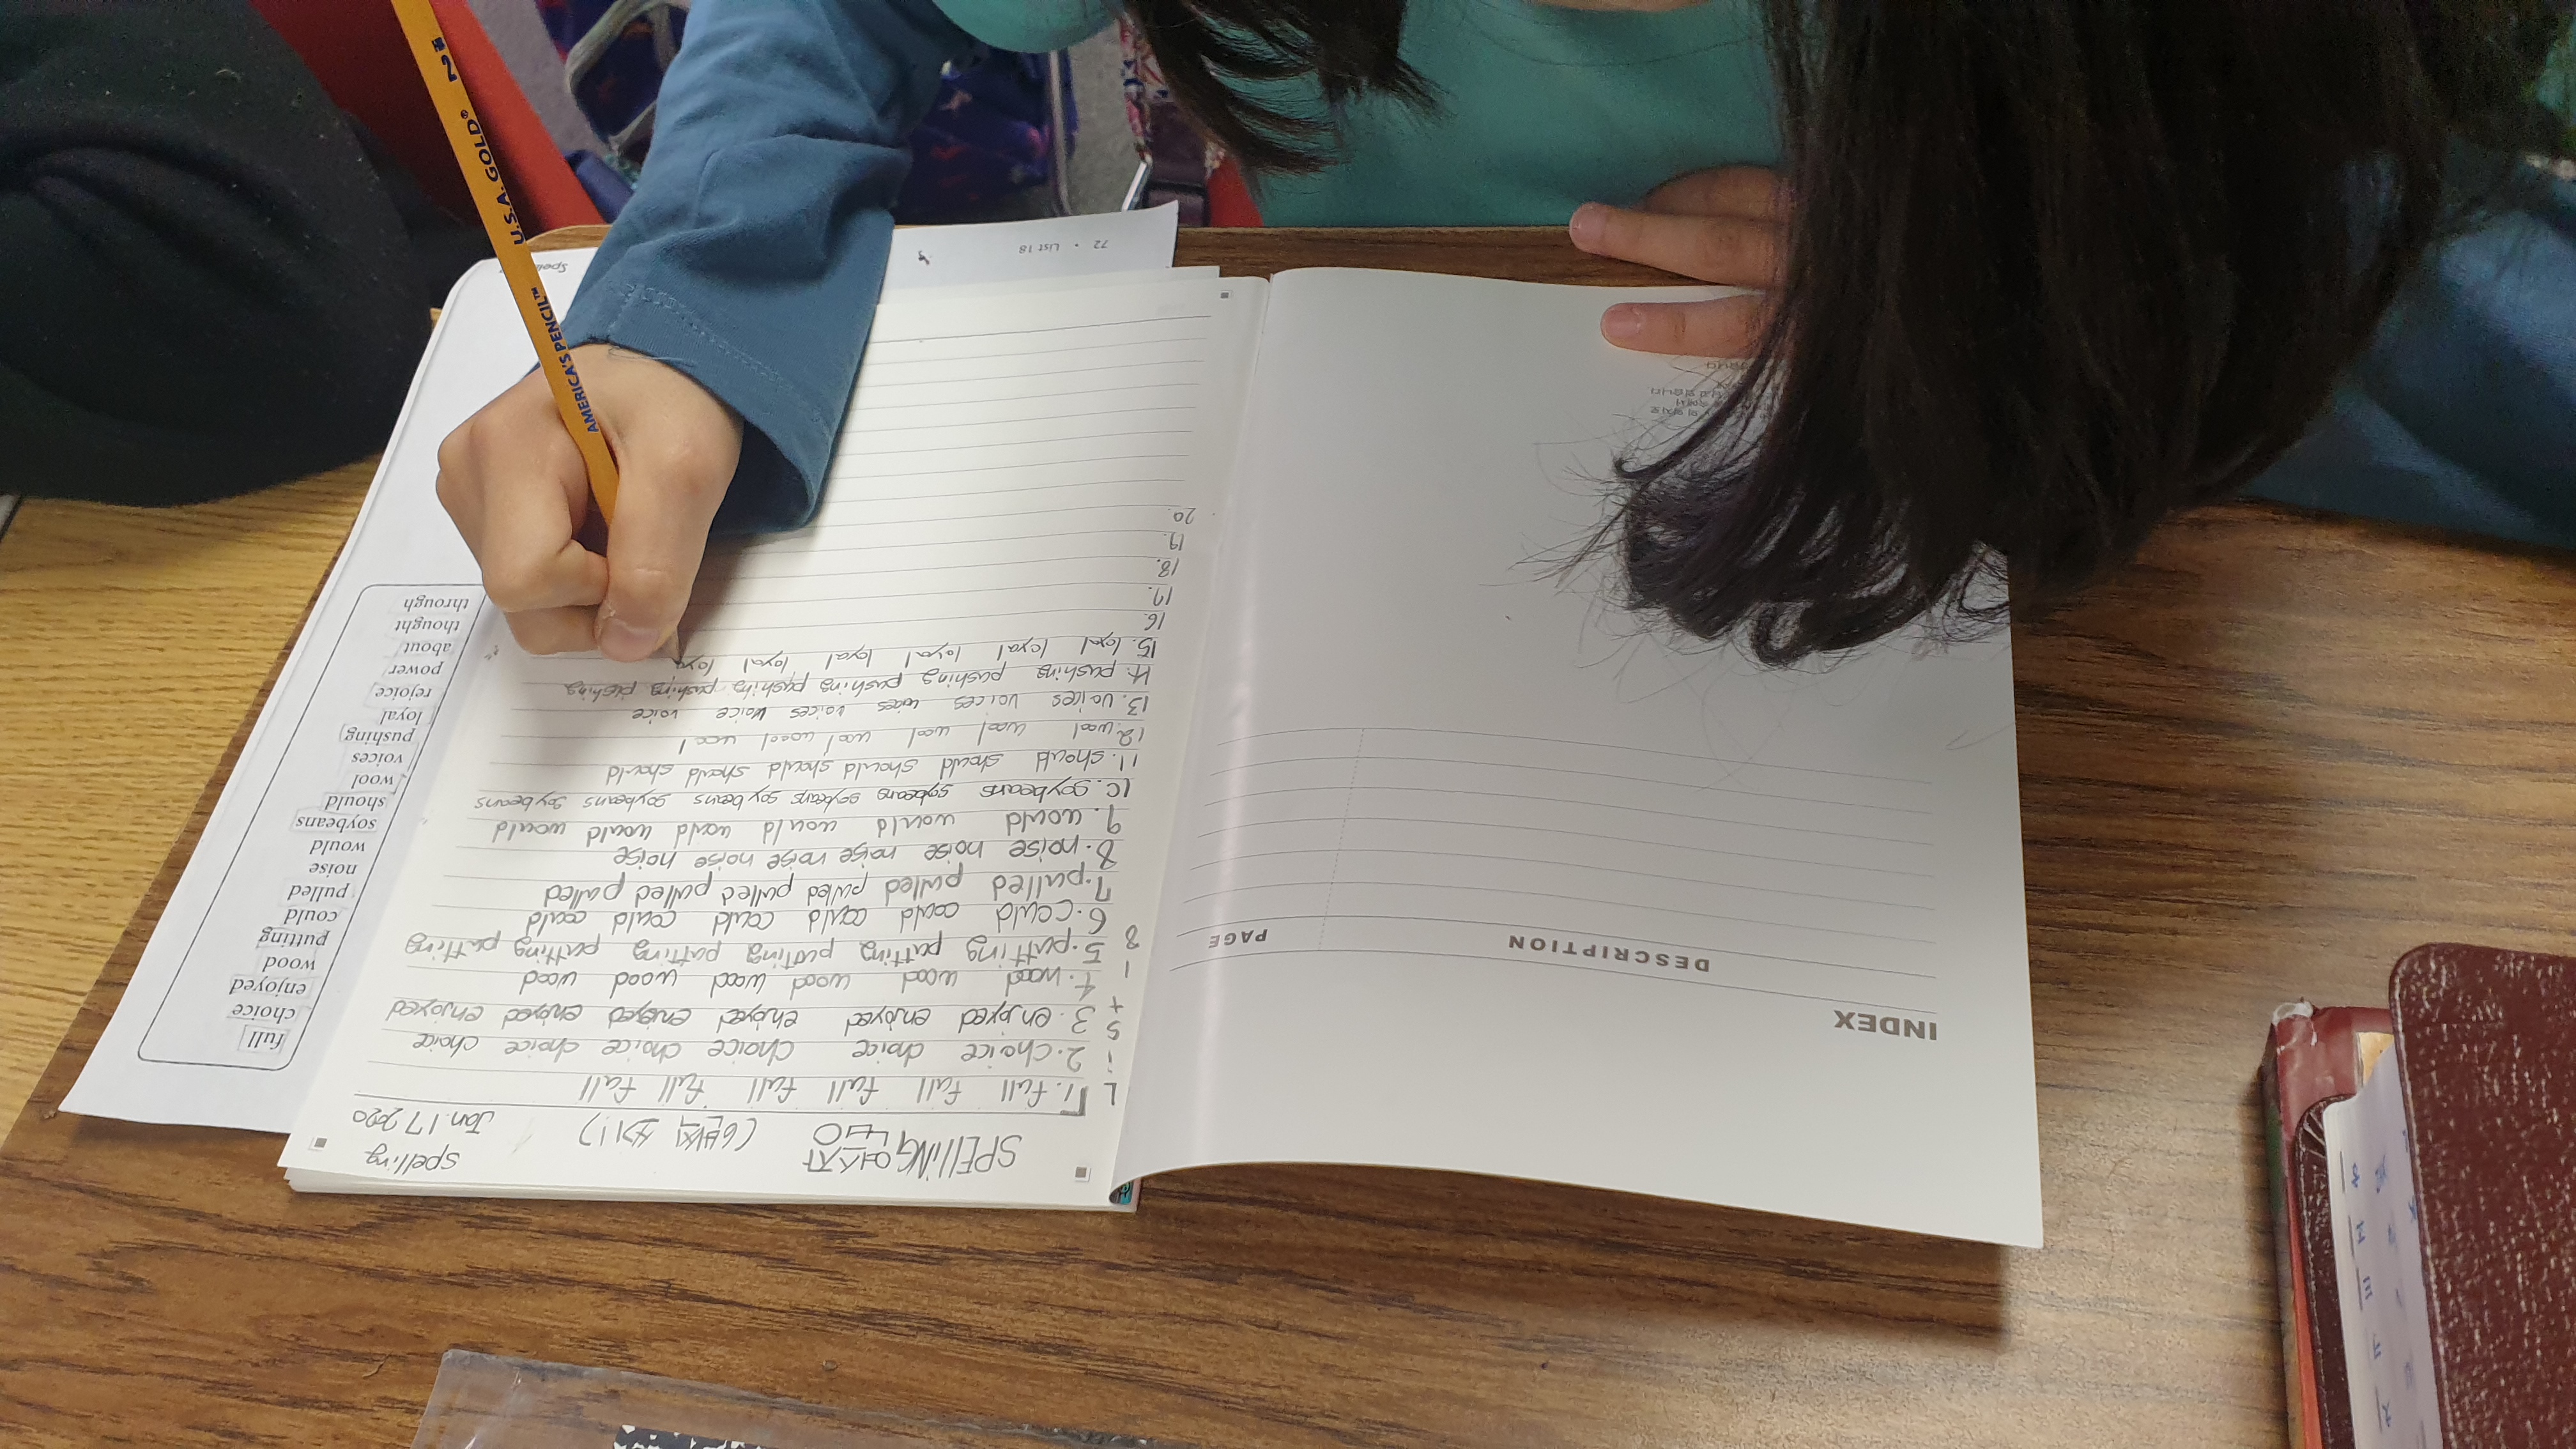 SPELLING 연습장 Spelling
(6번씩 쓰기!) Jan. 17 2020
List 18
1. full full full full full full full
2. choice choice choice choice choice choice choice
3. enjoyed enjoyed enjoyed enjoyed enjoyed enjoyed enjoyed
4. wood wood wood wood wood wood wood
5. putting putting putting putting putting putting putting
6. could could could could could could could
7. pulled pulled pulled pulled pulled pulled pulled
8. noise noise noise noise noise noise noise
9. would would would would would would would
10. soybeans soybeans soybeans soybeans soybeans soybeans soybeans
11. should should should should should should should
12. wool wool wool wool wool wool wool
13. voices voices voices voices voice voice
14. pushing pushing pushing pushing pushing pushing pushing
15. loyal loyal loyal loyal loyal loyal loya
16.
17.
18.
19.
20.
full
choice
enjoyed
wood
putting
could
pulled
noise
would
soybeans
should
wool
voices
pushing
loyal
rejoice
power
about
thought
through
72 • List 18
INDEX
PAGE DESCRIPTION
AMERICA'S PENCIL™ U.S.A. GOLD® #2